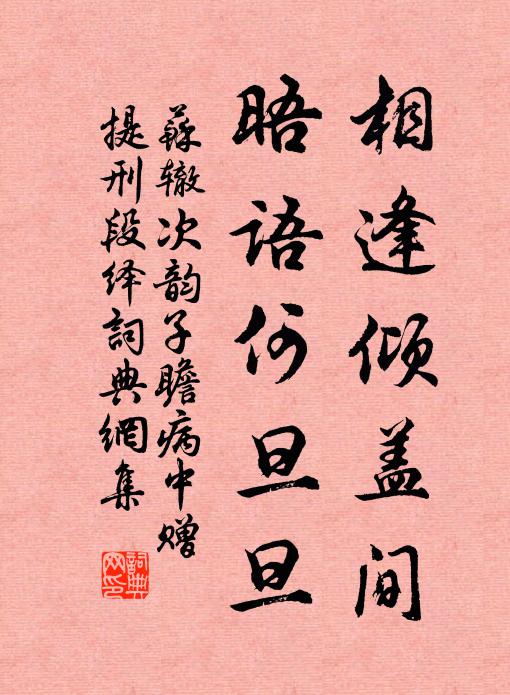 相逢倾盖间
晤语何旦旦
蘇辙次韵子瞻病中赠
提刑段绎詞典網集
詞典網印